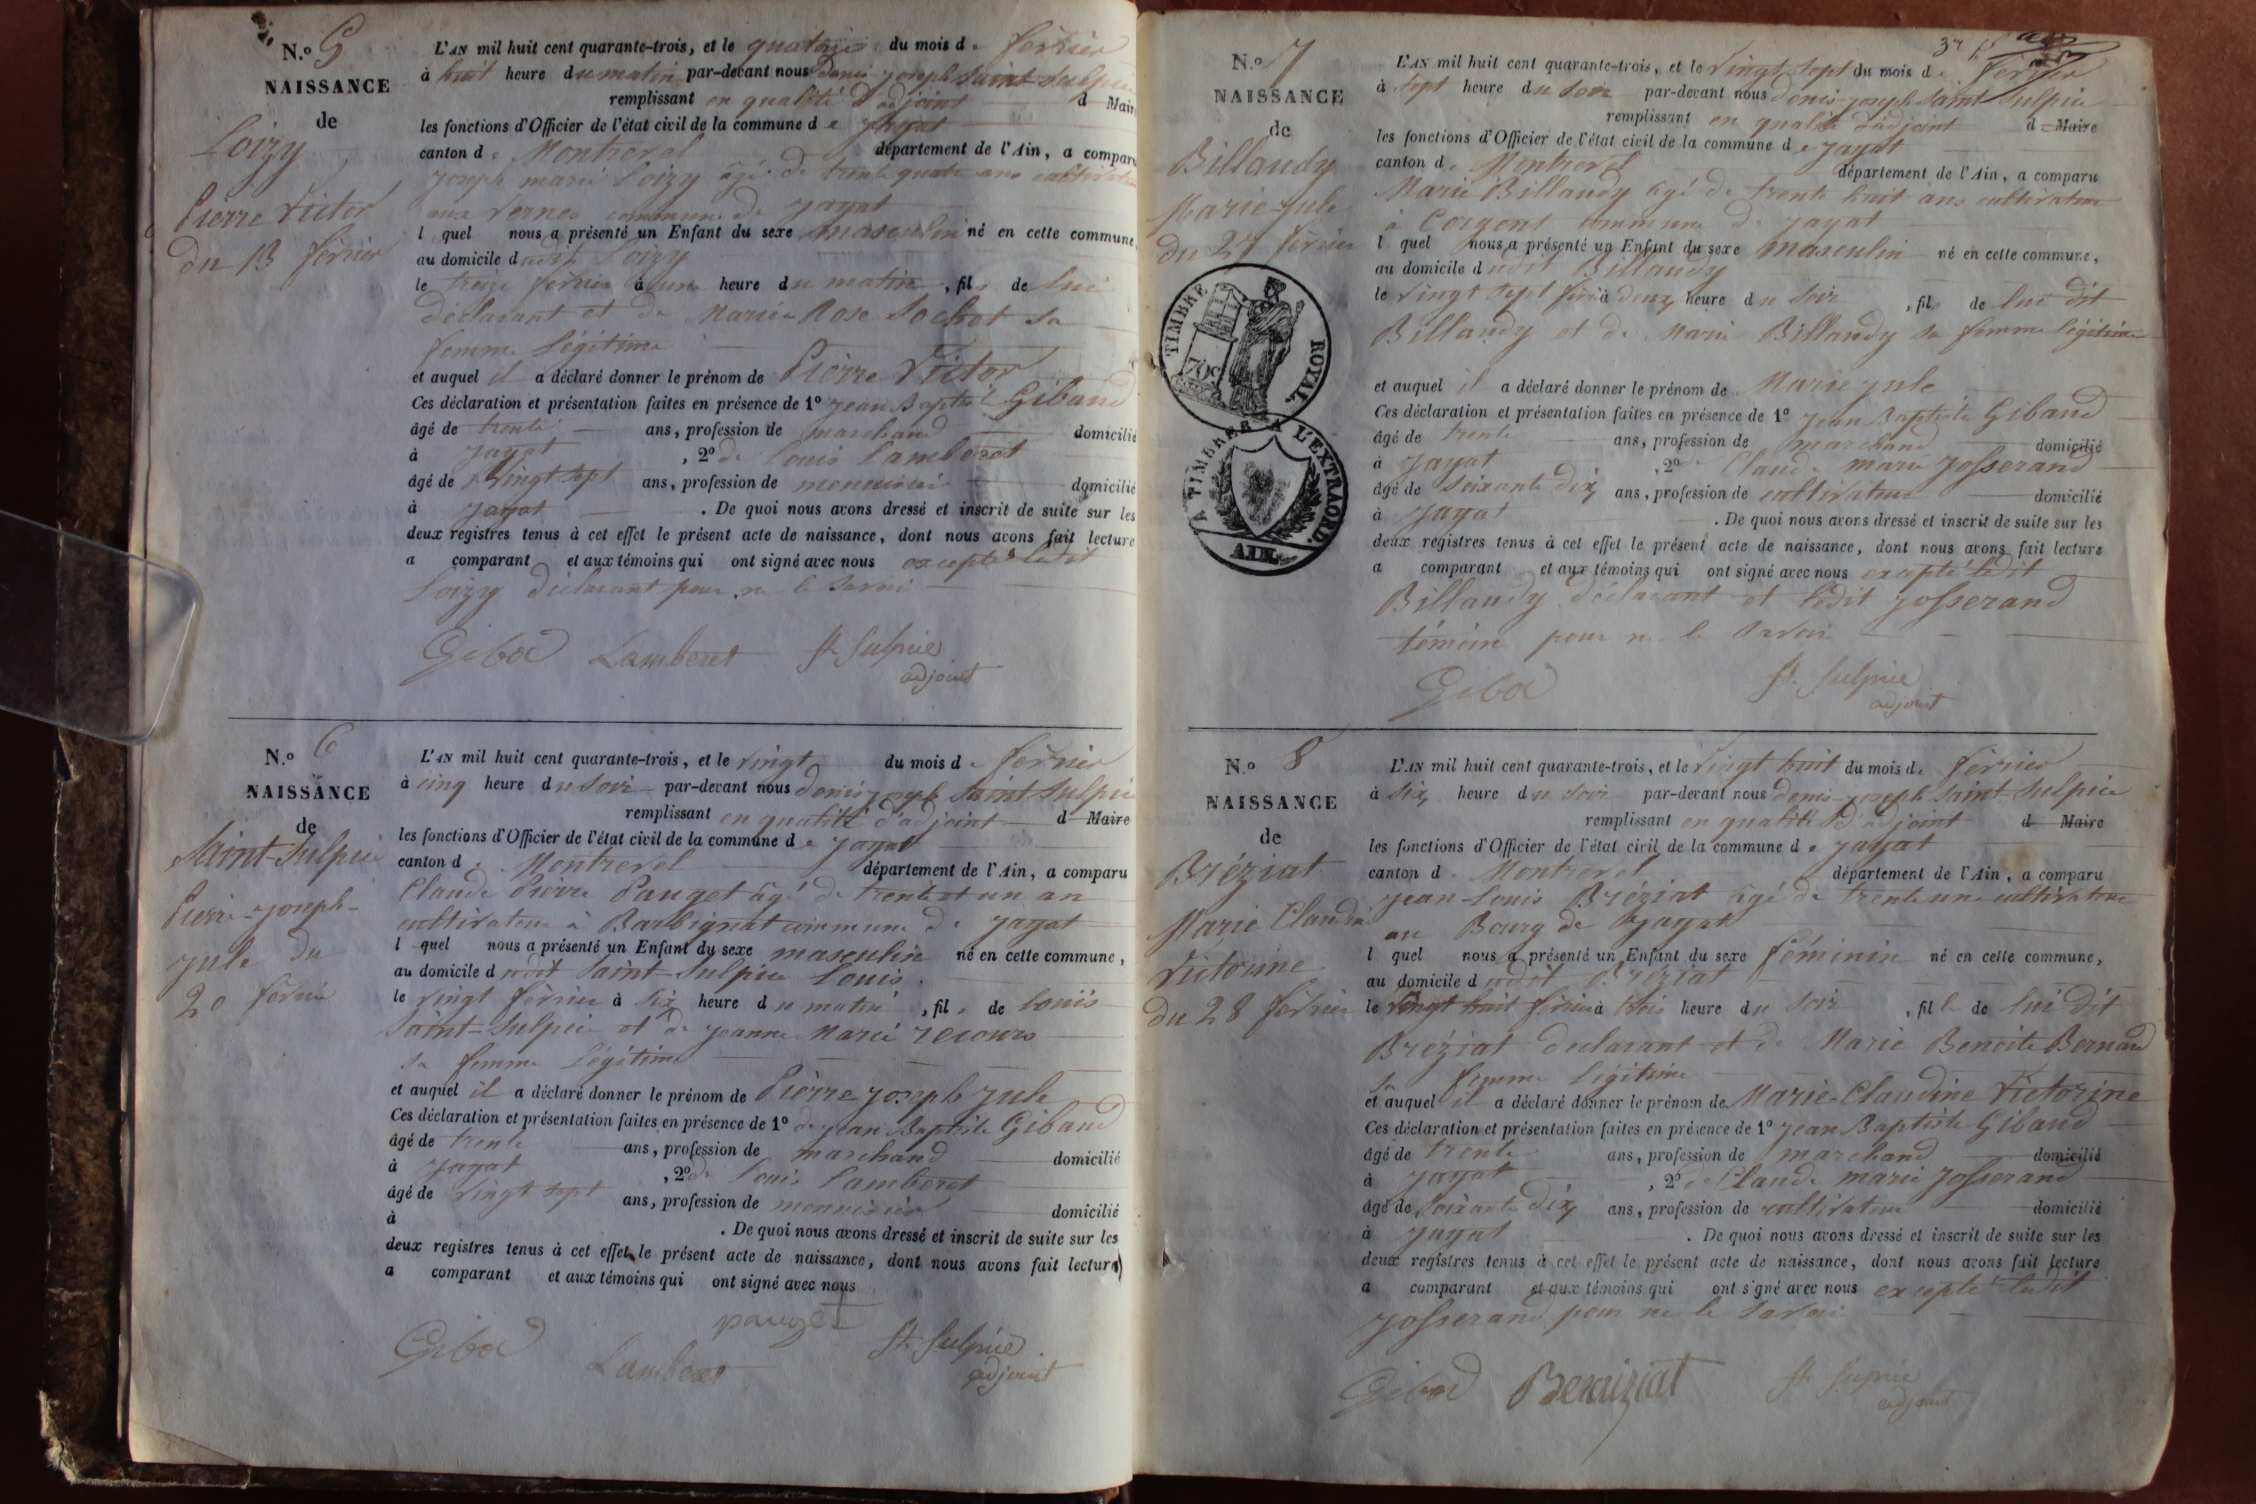 N.º 5
NAISSANCE
de
Loizy
Pierre Victor
du 13 février
L'AN mil huit cent quarante-trois, et le quatorze du mois de février
à huit heure du matin par-devant nous Denis joseph Saint Sulpice
remplissant en qualité d'adjoint d Maire
les fonctions d'Officier de l'état civil de la commune de jayat
canton de Montrevel département de l'Ain, a comparu
joseph marie Loizy agé de trente quatre ans cultivateur
aux Vernes commune de jayat
l quel nous a présenté un Enfant du sexe masculin né en cette commune,
au domicile dudit Loizy
le treize février à une heure du matin, fils de lui
déclarant et de Marie Rose Sochot sa
femme légitime
et auquel il a déclaré donner le prénom de Pierre Victor
Ces déclaration et présentation faites en présence de 1º jean Baptiste Giband
âgé de trente ans, profession de marchand domicilié
à jayat, 2º de Louis Lamberet
âgé de Vingt sept ans, profession de menuisier domicilié
à jayat. De quoi nous avons dressé et inscrit de suite sur les
deux registres tenus à cet effet le présent acte de naissance, dont nous avons fait lecture
a comparant et aux témoins qui ont signé avec nous excepté ledit
Loizy déclarant pour ne le savoir
Gibad Lamberet St Sulpice
adjoint
N.º 6
NAISSANCE
de
Saint-Sulpice
Pierre-joseph-
jule du
20 février
L'AN mil huit cent quarante-trois, et le Vingt du mois de février
à cinq heure du soir par-devant nous denis joseph Saint Sulpice
remplissant en qualité d'adjoint d Maire
les fonctions d'Officier de l'état civil de la commune de jayat
canton de Montrevel département de l'Ain, a comparu
Claude Pierre Pauget agé de trente et un an
cultivateur à Barbignat commune de jayat
l quel nous a présenté un Enfant du sexe masculin né en cette commune,
au domicile dudit Saint-Sulpice Louis
le Vingt février à six heure du matin, fils de Louis
Saint-Sulpice et de jeanne Marie recours
sa femme légitime
et auquel il a déclaré donner le prénom de Pierre joseph jule
Ces déclaration et présentation faites en présence de 1º de jean Baptiste Giband
âgé de trente ans, profession de marchand domicilié
à jayat, 2º de Louis Lamberet
âgé de Vingt sept ans, profession de menuisier domicilié
à . De quoi nous avons dressé et inscrit de suite sur les
deux registres tenus à cet effet le présent acte de naissance, dont nous avons fait lecture
a comparant et aux témoins qui ont signé avec nous
pauget
Gibad Lamberet St Sulpice
adjoint
37
N.º 7
NAISSANCE
de
Billaudy
Marie-jule
du 27 février
TIMBRE ROYAL.
70c
A TIMBRER A L'EXTRAORD.
AIN
L'AN mil huit cent quarante-trois, et le Vingt sept du mois de février
à sept heure du soir par-devant nous denis-joseph Saint Sulpice
remplissant en qualité d'adjoint d Maire
les fonctions d'Officier de l'état civil de la commune de jayat
canton de Montrevel département de l'Ain, a comparu
Marie Billaudy agé de trente huit ans cultivateur
à Corgent commune de jayat
l quel nous a présenté un Enfant du sexe masculin né en cette commune,
au domicile dudit Billaudy
le Vingt sept février à deux heure du soir, fils de lui dit
Billaudy et de Marie Billaudy sa femme légitime
et auquel il a déclaré donner le prénom de Marie jule
Ces déclaration et présentation faites en présence de 1º jean Baptiste Giband
âgé de trente ans, profession de marchand domicilié
à jayat, 2º Claude marie josserand
âgé de soixante dix ans, profession de cultivateur domicilié
à jayat. De quoi nous avons dressé et inscrit de suite sur les
deux registres tenus à cet effet le présent acte de naissance, dont nous avons fait lecture
a comparant et aux témoins qui ont signé avec nous excepté ledit
Billaudy déclarant et ledit josserand
témoin pour ne le savoir
Gibad St Sulpice
adjoint
N.º 8
NAISSANCE
de
Bréziat
Marie Claudine
Victorine
du 28 février
L'AN mil huit cent quarante-trois, et le Vingt huit du mois de février
à six heure du soir par-devant nous denis-joseph Saint-Sulpice
remplissant en qualité d'adjoint d Maire
les fonctions d'Officier de l'état civil de la commune de jayat
canton de Montrevel département de l'Ain, a comparu
jean-Louis Bréziat agé de trente une cultivateur
au Bourg de jayat
l quel nous a présenté un Enfant du sexe féminin né en cette commune,
au domicile dudit Bréziat
le Vingt huit février à trois heure du soir, fille de lui dit
Bréziat declarant et de Marie Benoite Bernard
sa femme légitime
et auquel il a déclaré donner le prénom de Marie-Claudine Victorine
Ces déclaration et présentation faites en présence de 1º jean Baptiste Giband
âgé de trente ans, profession de marchand domicilié
à jayat, 2º de Claude marie josserand
âgé de soixante dix ans, profession de cultivateur domicilié
à jayat. De quoi nous avons dressé et inscrit de suite sur les
deux registres tenus à cet effet le présent acte de naissance, dont nous avons fait lecture
a comparant et aux témoins qui ont signé avec nous excepté ledit
josserand pour ne le savoir
Gibad Bereiziat St Supice
adjoint